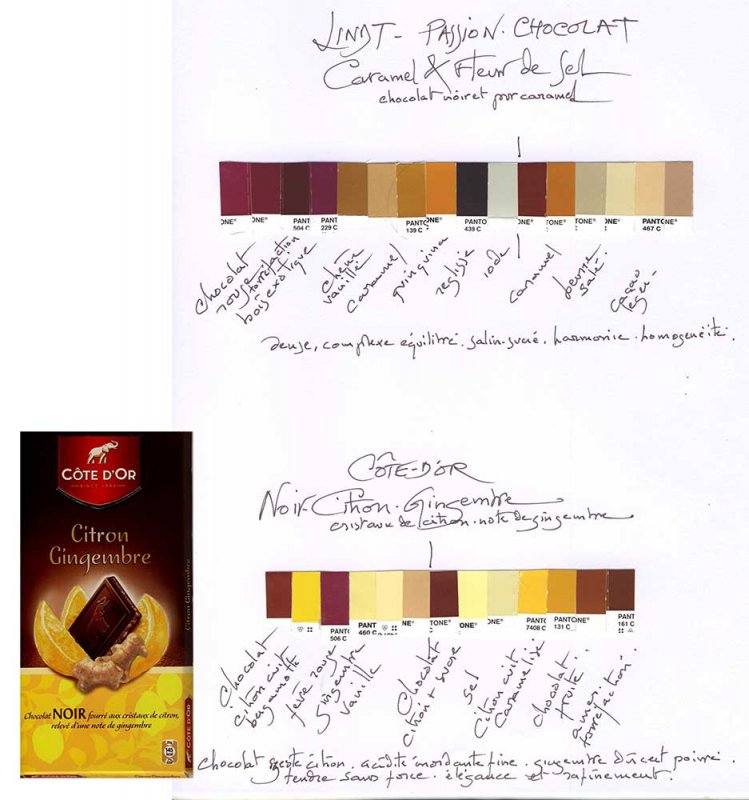 LINDT - PASSION. CHOCOLAT
Caramel & Fleur de Sel
chocolat noir et pur caramel
ONE® ONE® PANT PANT PANT ONE® PANTO ONE® ONE® ONE® PANTONE®
504 C 229 C 139 C 439 C 467 C
chocolat
rouge
torréfaction
bois exotique
chêne
vanillé
caramel
quinquina
reglisse
iode
caramel
beurre
salé.
cacao
léger.
dense, complexe équilibré. salin-sucré. harmonie. homogénéité.
CÔTE D'OR
Citron
Gingembre
Citron Gingembre
Chocolat NOIR fourré aux cristaux de citron,
relevé d'une note de gingembre
CÔTE D'OR
CÔTE-D'OR
Noir-Citron. Gingembre
cristaux de citron. note de gingembre
PANT PANT ONE® ONE® PANT PANTONE® PANT
506 C 460 C 7408 C 131 C 161 C
Chocolat
citron cuit
bergamote
fève rouge
gingembre
vanille
Chocolat
citron + sucre
sel
citron cuit
caramélisé
chocolat
fruité.
amer.
torréfaction.
Chocolat zeste citron. acidité mordante fine. gingembre discret poivré.
tendre sans force. élégance et raffinement.